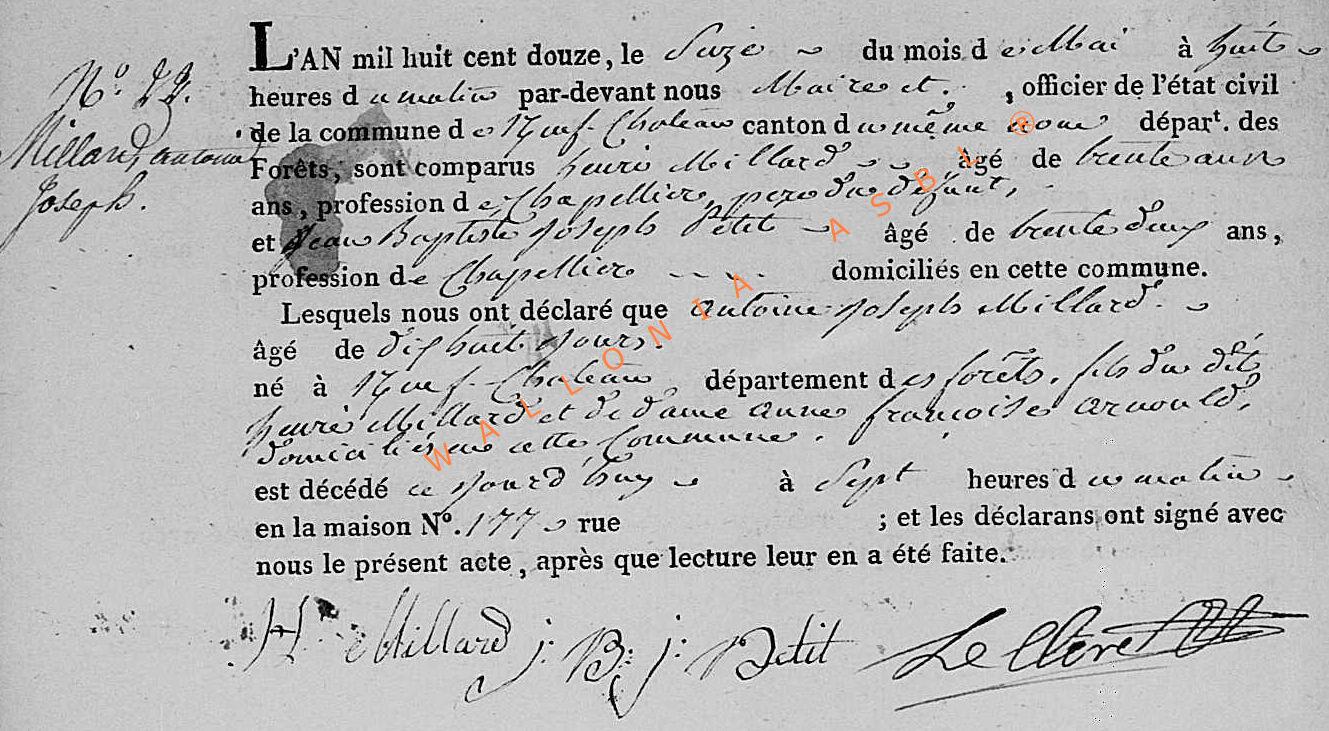 L'AN mil huit cent douze, le Suze du mois de Mai à huit
heures du matin par-devant nous Maire et. , officier de l'état civil
de la commune de Neuf-Chateau canton du même nom départ. des
Forêts, sont comparus henri Millard âgé de trente un
ans, profession de Chapellier, pere du défunt,
et Jean Baptiste Joseph Petit âgé de trente deux ans,
profession de Chapellier domiciliés en cette commune.
Lesquels nous ont déclaré que antoine Joseph Millard
âgé de dixhuit Jours.
né à Neuf-Chateau, département des forêts. fils du dit
henri Millard et de dame anne françoise arnould,
domiciliés en cette Commune.
est décédé ce Jourd'huy à Sept heures du matin
en la maison Nº. 177 rue ; et les déclarans ont signé avec
nous le présent acte, après que lecture leur en a été faite.
Nº.
Millard, antoine
Joseph.
H. Millard j: B: j: Petit Le Clerc
WALLONIA ASBL ®